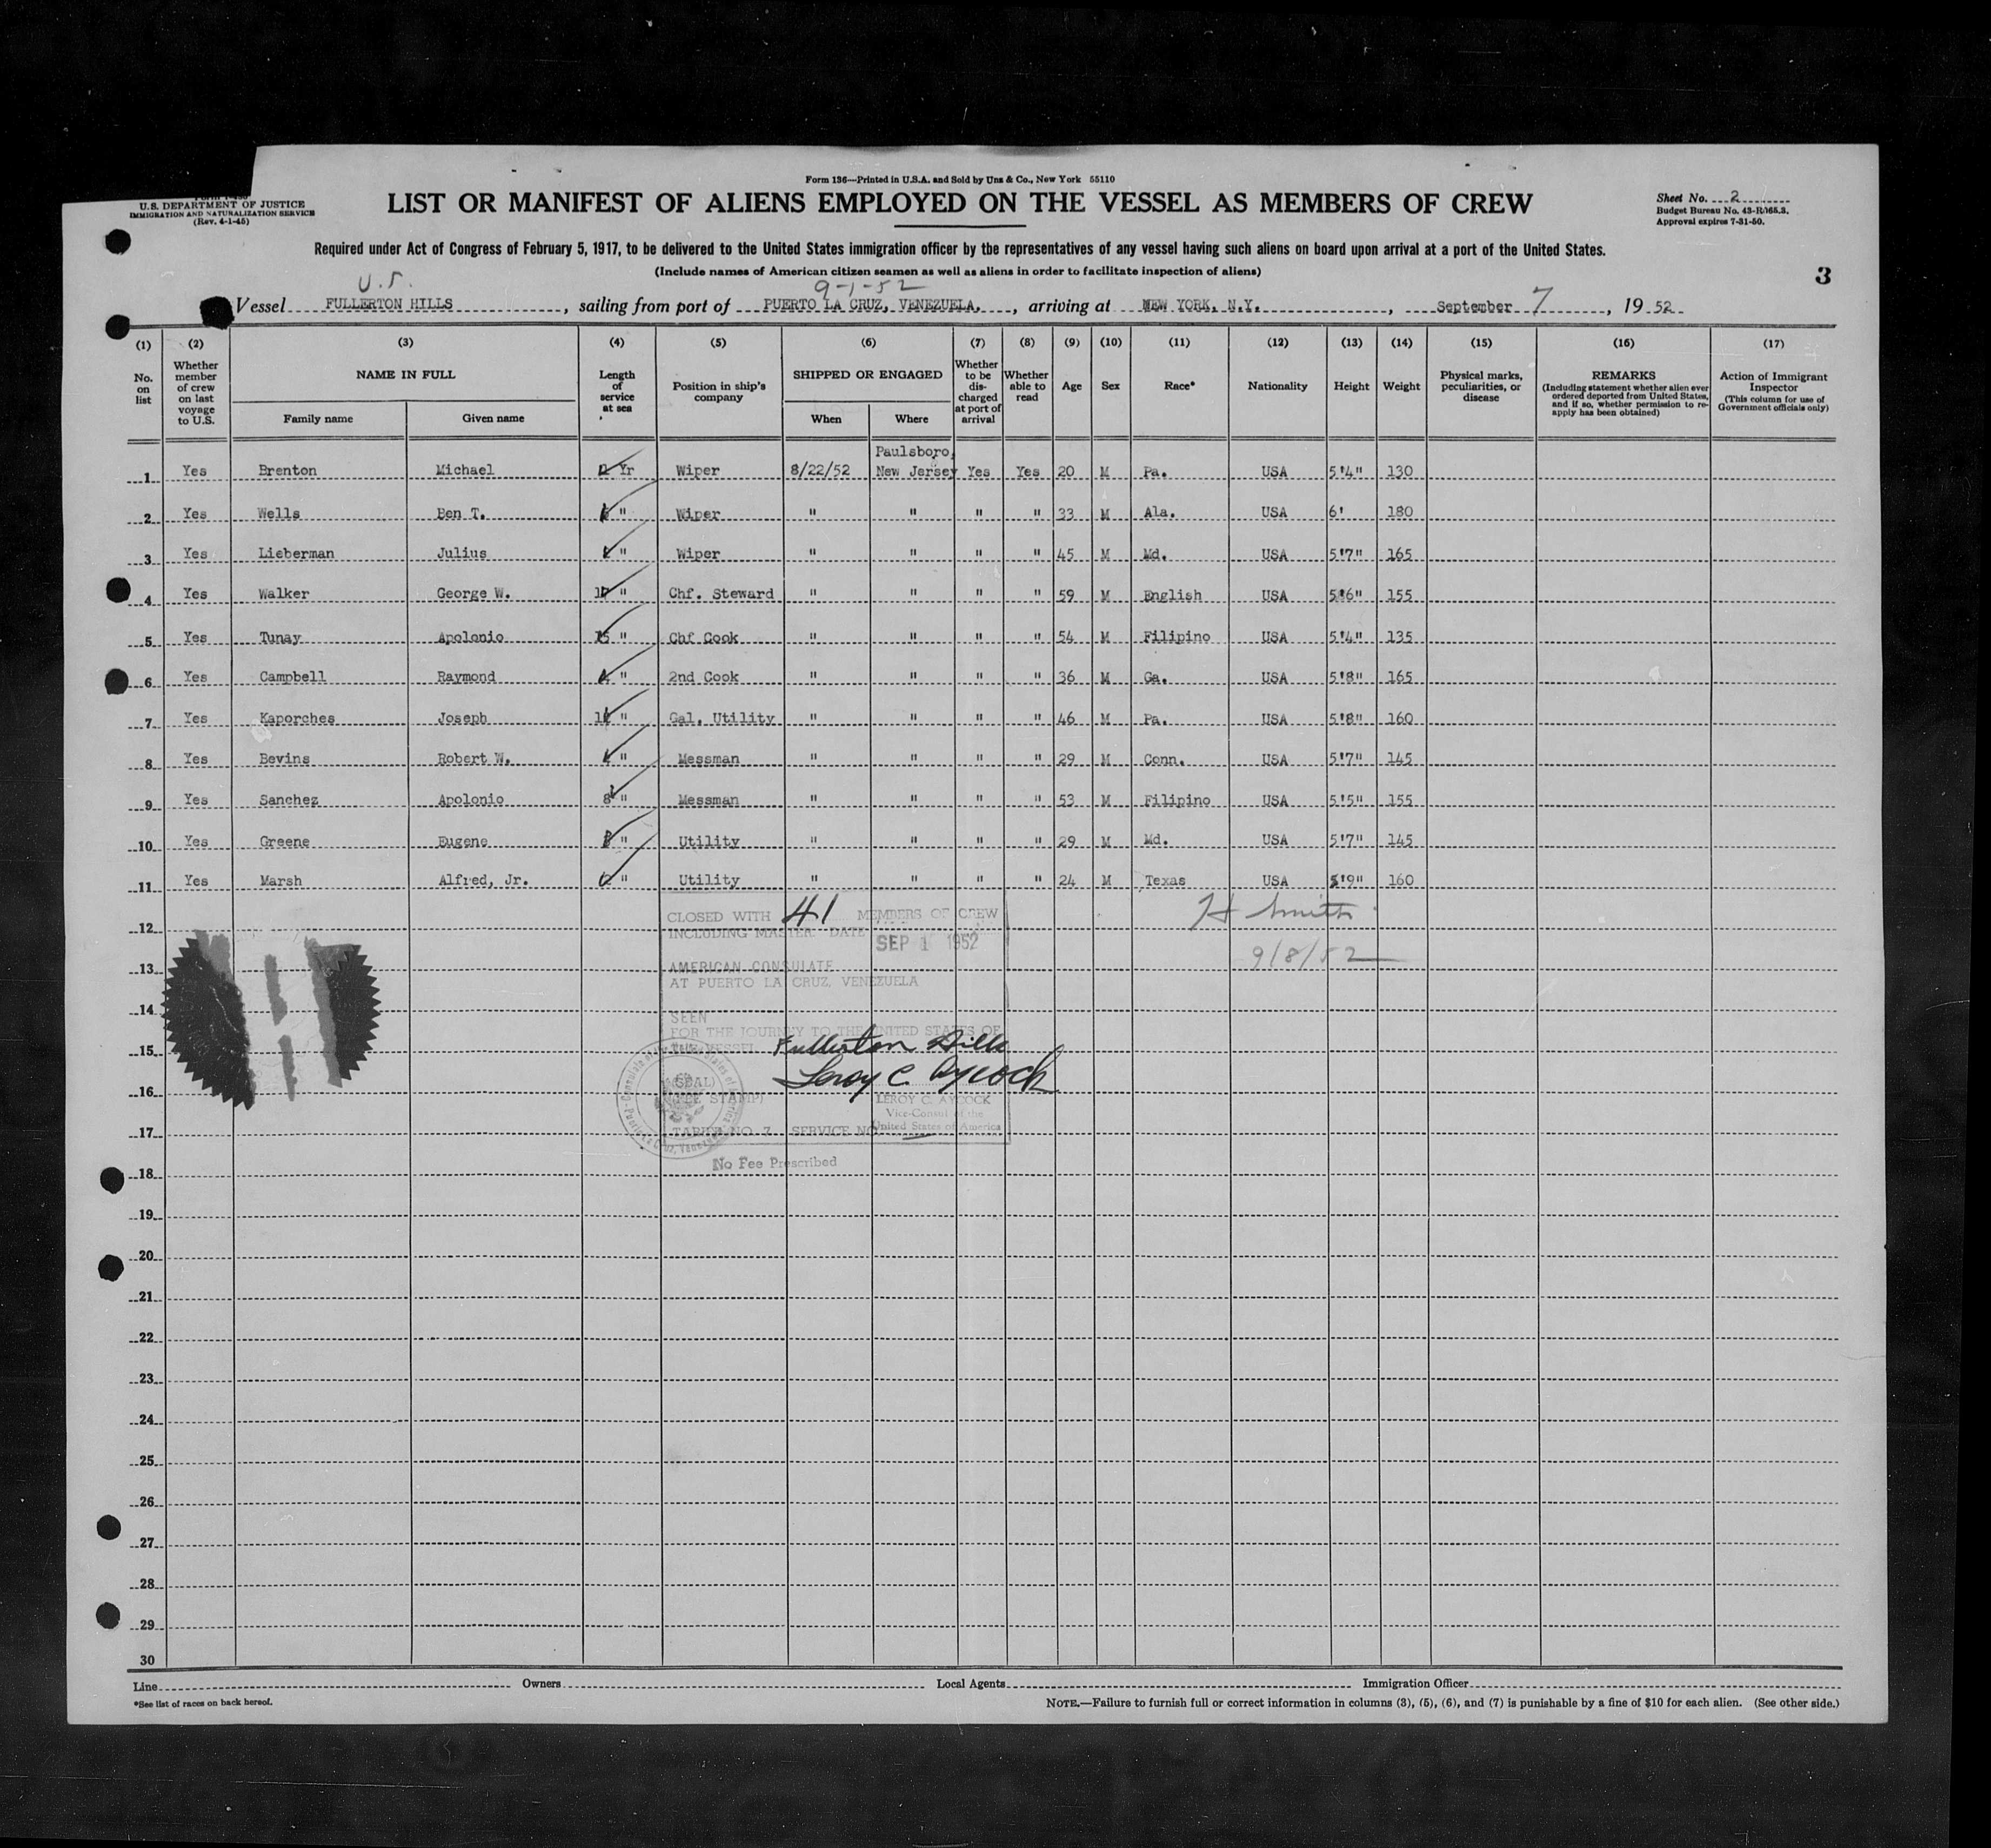 Form 136—Printed in U.S.A. and Sold by Unz & Co., New York 55110
U.S. DEPARTMENT OF JUSTICE
IMMIGRATION AND NATURALIZATION SERVICE
(Rev. 4-1-45)
LIST OR MANIFEST OF ALIENS EMPLOYED ON THE VESSEL AS MEMBERS OF CREW
Sheet No. 2
Budget Bureau No. 43-R165.3.
Approval expires 7-31-50.
Required under Act of Congress of February 5, 1917, to be delivered to the United States immigration officer by the representatives of any vessel having such aliens on board upon arrival at a port of the United States.
(Include names of American citizen seamen as well as aliens in order to facilitate inspection of aliens)
3
U.S. 9-1-52
Vessel FULLERTON HILLS, sailing from port of PUERTO LA CRUZ, VENEZUELA, arriving at NEW YORK, N.Y., September 7, 1952
(1) (2) (3) (4) (5) (6) (7) (8) (9) (10) (11) (12) (13) (14) (15) (16) (17)
No. on list
Whether member of crew on last voyage to U.S.
NAME IN FULL
Family name Given name
Length of service at sea
Position in ship's company
SHIPPED OR ENGAGED
When Where
Whether to be discharged at port of arrival
Whether able to read
Age Sex Race* Nationality Height Weight
Physical marks, peculiarities, or disease
REMARKS
(Including statement whether alien ever ordered deported from United States, and if so, whether permission to reapply has been obtained)
Action of Immigrant Inspector
(This column for use of Government officials only)
Paulsboro,
1 Yes Brenton Michael Yr Wiper 8/22/52 New Jersey Yes Yes 20 M Pa. USA 5'4" 130
2 Yes Wells Ben T. " Wiper " " " " 33 M Ala. USA 6' 180
3 Yes Lieberman Julius " Wiper " " " " 45 M Md. USA 5'7" 165
4 Yes Walker George W. " Chf. Steward " " " " 59 M English USA 5'6" 155
5 Yes Tunay Apolonio 15 " Chf Cook " " " " 54 M Filipino USA 5'4" 135
6 Yes Campbell Raymond " 2nd Cook " " " " 36 M Ga. USA 5'8" 165
7 Yes Kaporches Joseph " Gal. Utility " " " " 46 M Pa. USA 5'8" 160
8 Yes Bevins Robert W. " Messman " " " " 29 M Conn. USA 5'7" 145
9 Yes Sanchez Apolonio " Messman " " " " 53 M Filipino USA 5'5" 155
10 Yes Greene Eugene " Utility " " " " 29 M Md. USA 5'7" 145
11 Yes Marsh Alfred, Jr. " Utility " " " " 24 M Texas USA 5'9" 160
12
13
14
15
16
17
18
19
20
21
22
23
24
25
26
27
28
29
30
CLOSED WITH 41 MEMBERS OF CREW
INCLUDING MASTER. DATE SEP 1 1952
AMERICAN CONSULATE
AT PUERTO LA CRUZ, VENEZUELA
SEEN
FOR THE JOURNEY TO THE UNITED STATES OF
THE VESSEL Fullerton Hills
Leroy C. Aycock
(SEAL)
(FEE STAMP)
LEROY C. AYCOCK
Vice-Consul of the
United States of America
TARIFF NO. 7 SERVICE NO.
No Fee Prescribed
H Smith
9/8/52
Line Owners Local Agents Immigration Officer
*See list of races on back hereof.
NOTE.—Failure to furnish full or correct information in columns (3), (5), (6), and (7) is punishable by a fine of $10 for each alien. (See other side.)